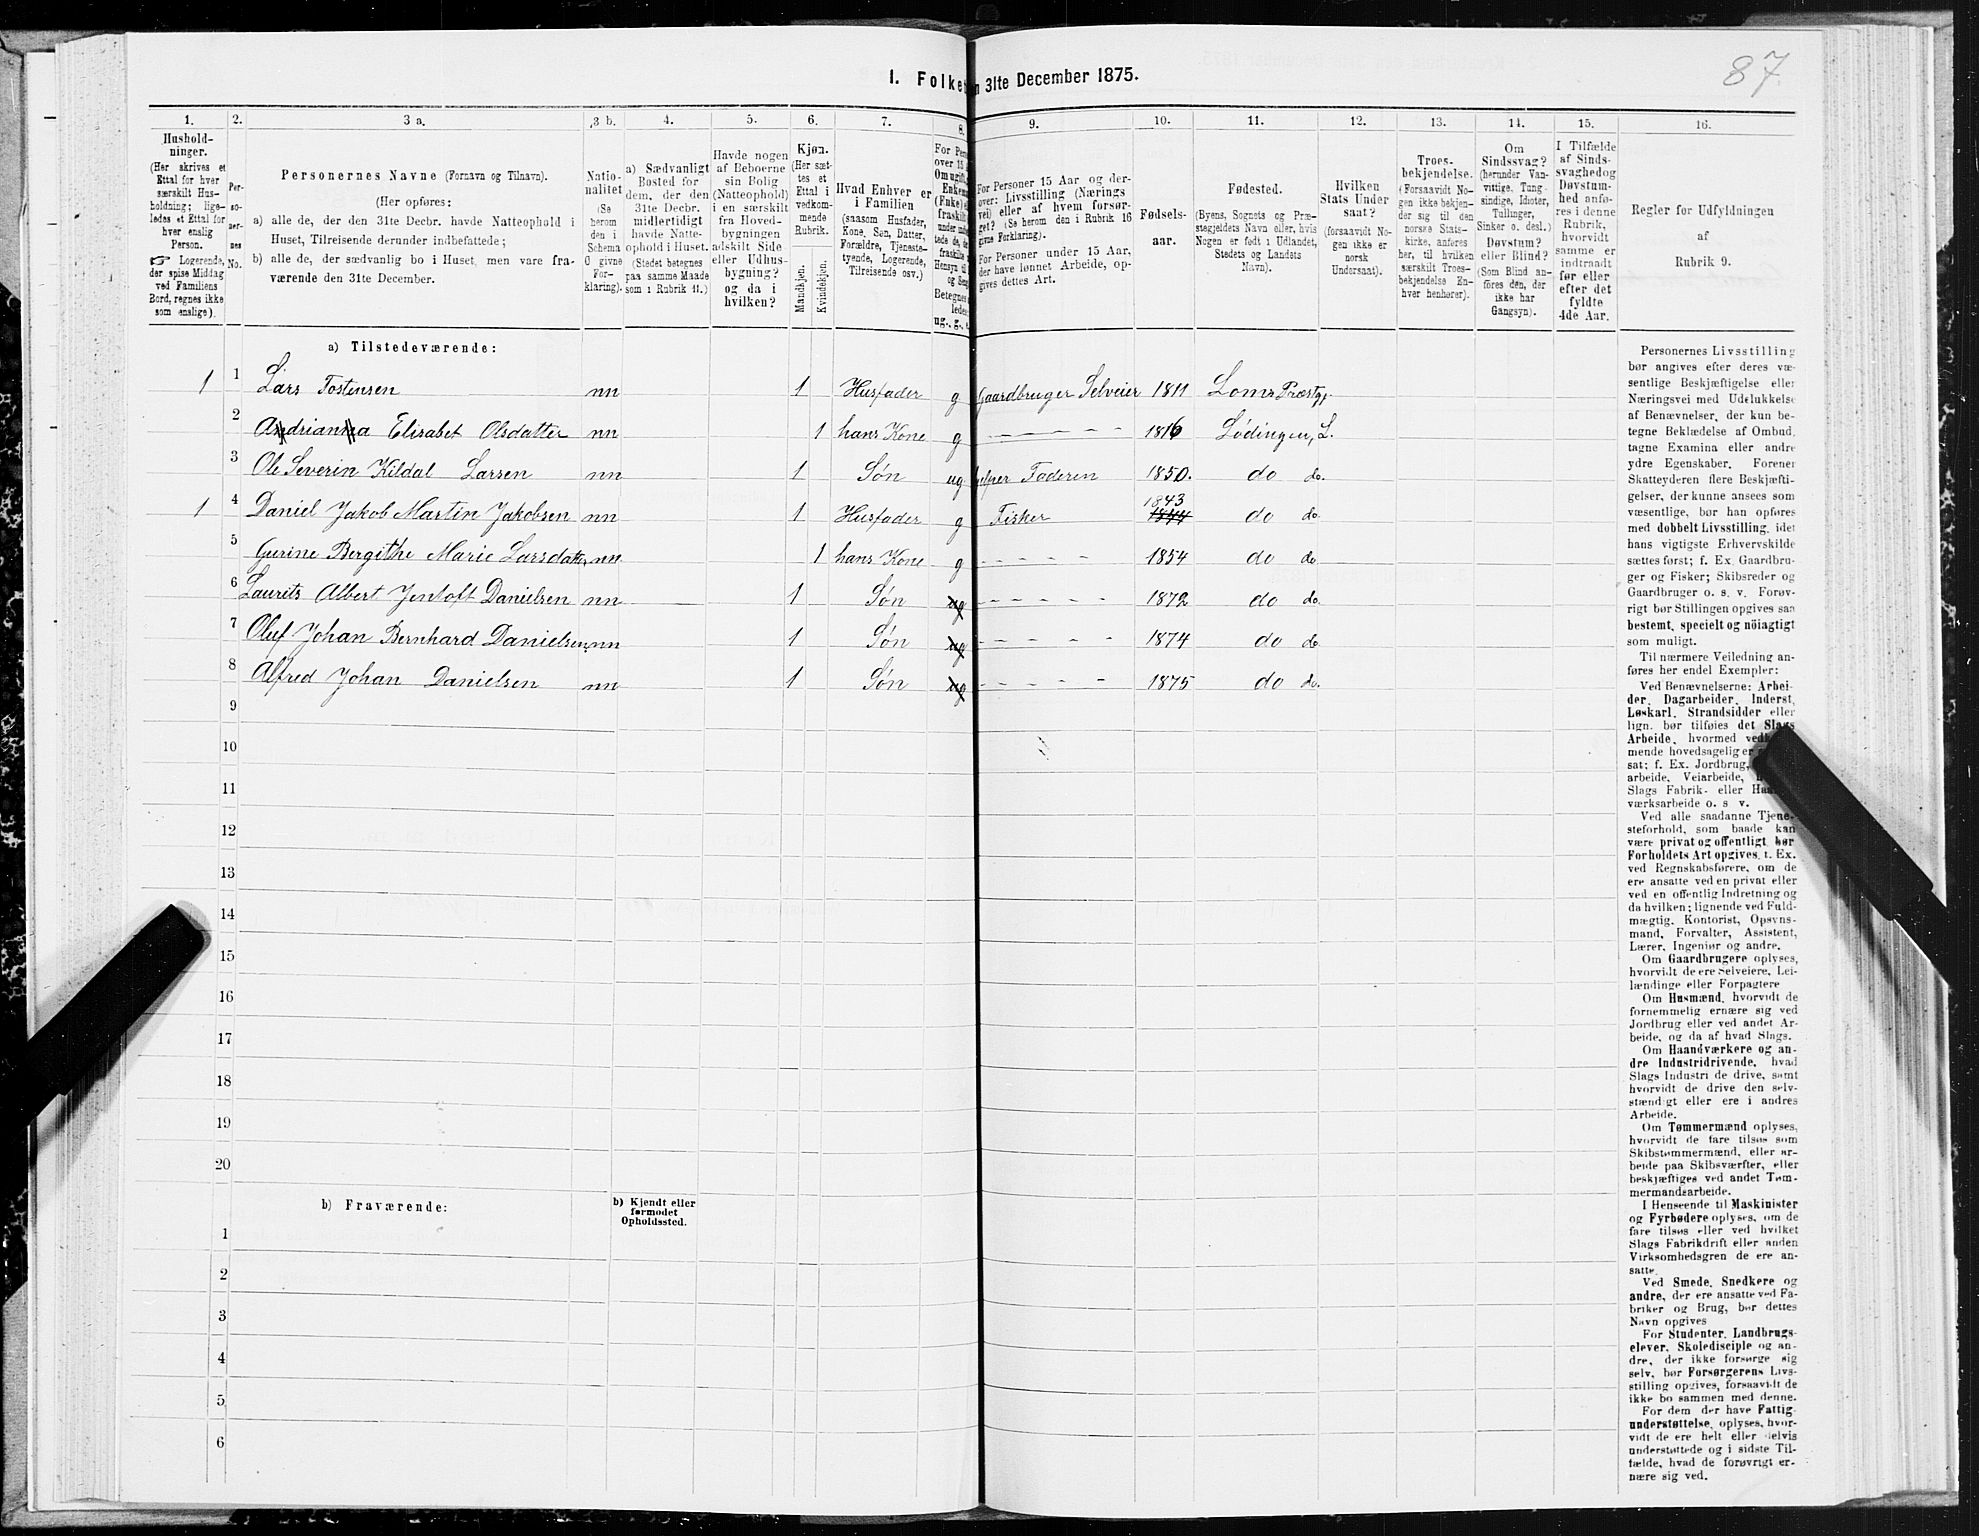 87
I. Folke
n 31te December 1875.
1. 2. 3 a. 3 b. 4. 5. 6. 7. 8. 9. 10. 11. 12. 13. 14. 15. 16.
Hushold-
ninger.
(Her skrives et
Ettal for hver
særskilt Hus-
holdning; lige-
ledes et Ettal for
hver enslig
Person.
☞ Logerende,
der spise Middag
ved Familiens
Bord, regnes ikke
som enslige).
Per-
so-
ner-
nes
No.
Personernes Navne (Fornavn og Tilnavn).
(Her opføres:
a) alle de, der den 31te Decbr. havde Natteophold i
Huset, Tilreisende derunder indbefattede;
b) alle de, der sædvanlig bo i Huset, men vare fra-
værende den 31te December.
Natio-
nalitet
(Se
herom
den i
Schema
O givne
For-
klaring).
a) Sædvanligt
Bosted for
dem, der den
31te Decbr.
midlertidigt
havde Natte-
ophold i Huset.
(Stedet betegnes
paa samme Maade
som i Rubrik 11.)
Havde nogen
af Beboerne
sin Bolig
(Natteophold)
i en særskilt
fra Hoved-
bygningen
adskilt Side
eller Udhus-
bygning?
og da i
hvilken?
Kjøn.
(Her sæt-
tes et
Ettal i
vedkom-
mende
Rubrik.
Mandkjøn.
Kvindekjøn.
Hvad Enhver er
i Familien
(saasom Husfader,
Kone, Søn, Datter,
Forældre, Tjeneste-
tyende, Logerende,
Tilreisende osv.)
For Pers
over 15
Om ugift,
Enkem
(Enke)
fraskilt
Betegnes
ledes:
ug., g.,
For Personer 15 Aar og der-
over: Livsstilling (Nærings
vei) eller af hvem forsør-
get? (Se herom den i Rubrik 16
givne Forklaring).
For Personer under 15 Aar,
der have lønnet Arbeide, op-
gives dettes Art.
Fødsels-
aar.
Fødested.
(Byens, Sognets og Præ-
stegjeldets Navn eller, hvis
Nogen er født i Udlandet,
Stedets og Landets
Navn).
Hvilken
Stats Under
saat?
(forsaavidt No-
gen ikke er
norsk
Undersaat).
Troes-
bekjendelse.
(Forsaavidt No-
gen ikke bekjen-
der sig til den
norske Stats-
kirke, anføres
her, til hvilken
særskilt Troes-
bekjendelse En-
hver henhører).
Om
Sindssvag?
(herunder Van-
vittige, Tung-
sindige, Idioter,
Tullinger,
Sinker o. desl.)
Døvstum?
eller Blind?
(Som Blind an-
føres den, der
ikke har
Gangsyn).
I Tilfælde
af Sinds-
svaghed og
Døvstum-
hed anfø-
res i denne
Rubrik,
hvorvidt
samme er
indtraadt
før eller
efter det
fyldte
4de Aar.
Regler for Udfyldningen
af
Rubrik 9.
a) Tilstedeværende:
1 1 Lars Tostensen nn 1 Husfader g Gaardbruger Selveier 1811 Loms Præstgj.
2 Andrianna Elisabet Olsdatter nn 1 hans Kone g - - - - - 1816 Lødingen, L.
3 Ole Severin Kildal Larsen nn 1 Søn ug hjelper Faderen 1850. do do.
1 4 Daniel Jakob Martin Jakobsen nn 1 Husfader g Fisker 1843 1844 do do
5 Gurine Bergithe Marie Larsdatter nn 1 hans Kone g - - - - 1854 do do
6 Laurits Albert Jentoft Danielsen nn 1 Søn ug - - - - - 1872 do do.
7 Oluf Johan Bernhard Danielsen nn 1 Søn ug - - - - - 1874 do do
8 Alfred Johan Danielsen nn 1 Søn ug - - - - - 1875 do do.
9
10
11
12
13
14
15
16
17
18
19
20
b) Fraværende:
b) Kjendt eller
formodet
Opholdssted.
1
2
3
4
5
6
Personernes Livsstilling
bør angives efter deres væ-
sentlige Beskjæftigelse eller
Næringsvei med Udelukkelse
af Benævnelser, der kun be-
tegne Beklædelse af Ombud,
tagne Examina eller andre
ydre Egenskaber. Forener
Skatteyderen flere Beskjæfti-
gelser, der kunne ansees som
væsentlige, bør han opføres
med dobbelt Livsstilling, idet
hans vigtigste Erhvervskilde
sættes først; f. Ex. Gaardbru-
ger og Fisker; Skibsreder og
Gaardbruger o. s. v. Forøv-
rigt bør Stillingen opgives saa
bestemt, specielt og nöiagtigt
som muligt.
Til nærmere Veiledning an-
føres her endel Exempler:
Ved Benævnelserne: Arbei-
der, Dagarbeider, Inderst,
Løskarl, Strandsidder eller
lign. bør tilføies det Slags
Arbeide, hvormed ved
mende hovedsagelig er
sat; f. Ex. Jordbrug,
arbeide, Veiarbeide,
Slags Fabrik- eller Haa
værksarbeide o. s v.
Ved alle saadanne Tjene-
steforhold, som baade kan
være privat og offentligt, bør
Forholdets Art opgives, t. Ex.
ved Regnskabsførere, om de
ere ansatte ved en privat eller
ved en offentlig Indretning og
da hvilken; lignende ved Fuld-
mægtig, Kontorist, Opsyns-
mand, Forvalter, Assistent,
Lærer, Ingeniør og andre.
Om Gaardbrugere oplyses,
hvorvidt de ere Selveiere, Lei-
lændinge eller Forpagtere
Om Husmænd, hvorvidt de
fornemmelig ernære sig ved
Jordbrug eller ved andet Ar-
beide, og da af hvad Slags.
Om Haandværkere og an-
dre Industridrivende, hvad
Slags Industri de drive, samt
hvorvidt de drive den selv-
stændigt eller ere i andres
Arbeide.
Om Tømmermænd oplyses,
hvorvidt de fare tilsøs som
Skibstømmermænd, eller ar-
beide paa Skibsværfter, eller
beskjæftiges ved andet Tøm-
mermandsarbeide.
I Henseende til Maskinister
og Fyrbødere oplyses, om de
fare tilsøs eller ved hvilket
Slags Fabrikdrift eller anden
Virksomhedsgren de ere an-
satte.
Ved Smede, Snedkere og
andre, der ere ansatte ved Fa-
briker og Brug, bør dettes
Navn opgives
For Studenter, Landbrugs-
elever, Skoledisciple og an-
dre, der ikke forsørge sig
selv, bør Forsørgerens Livs-
stilling opgives, forsaavidt de
ikke bo sammen med denne.
For dem der have Fattig-
understøttelse, oplyses, hvor-
vidt de ere helt eller delvis
understøttede og i sidste Til-
fælde, hvad de forøvrigt er-
nære sig ved.